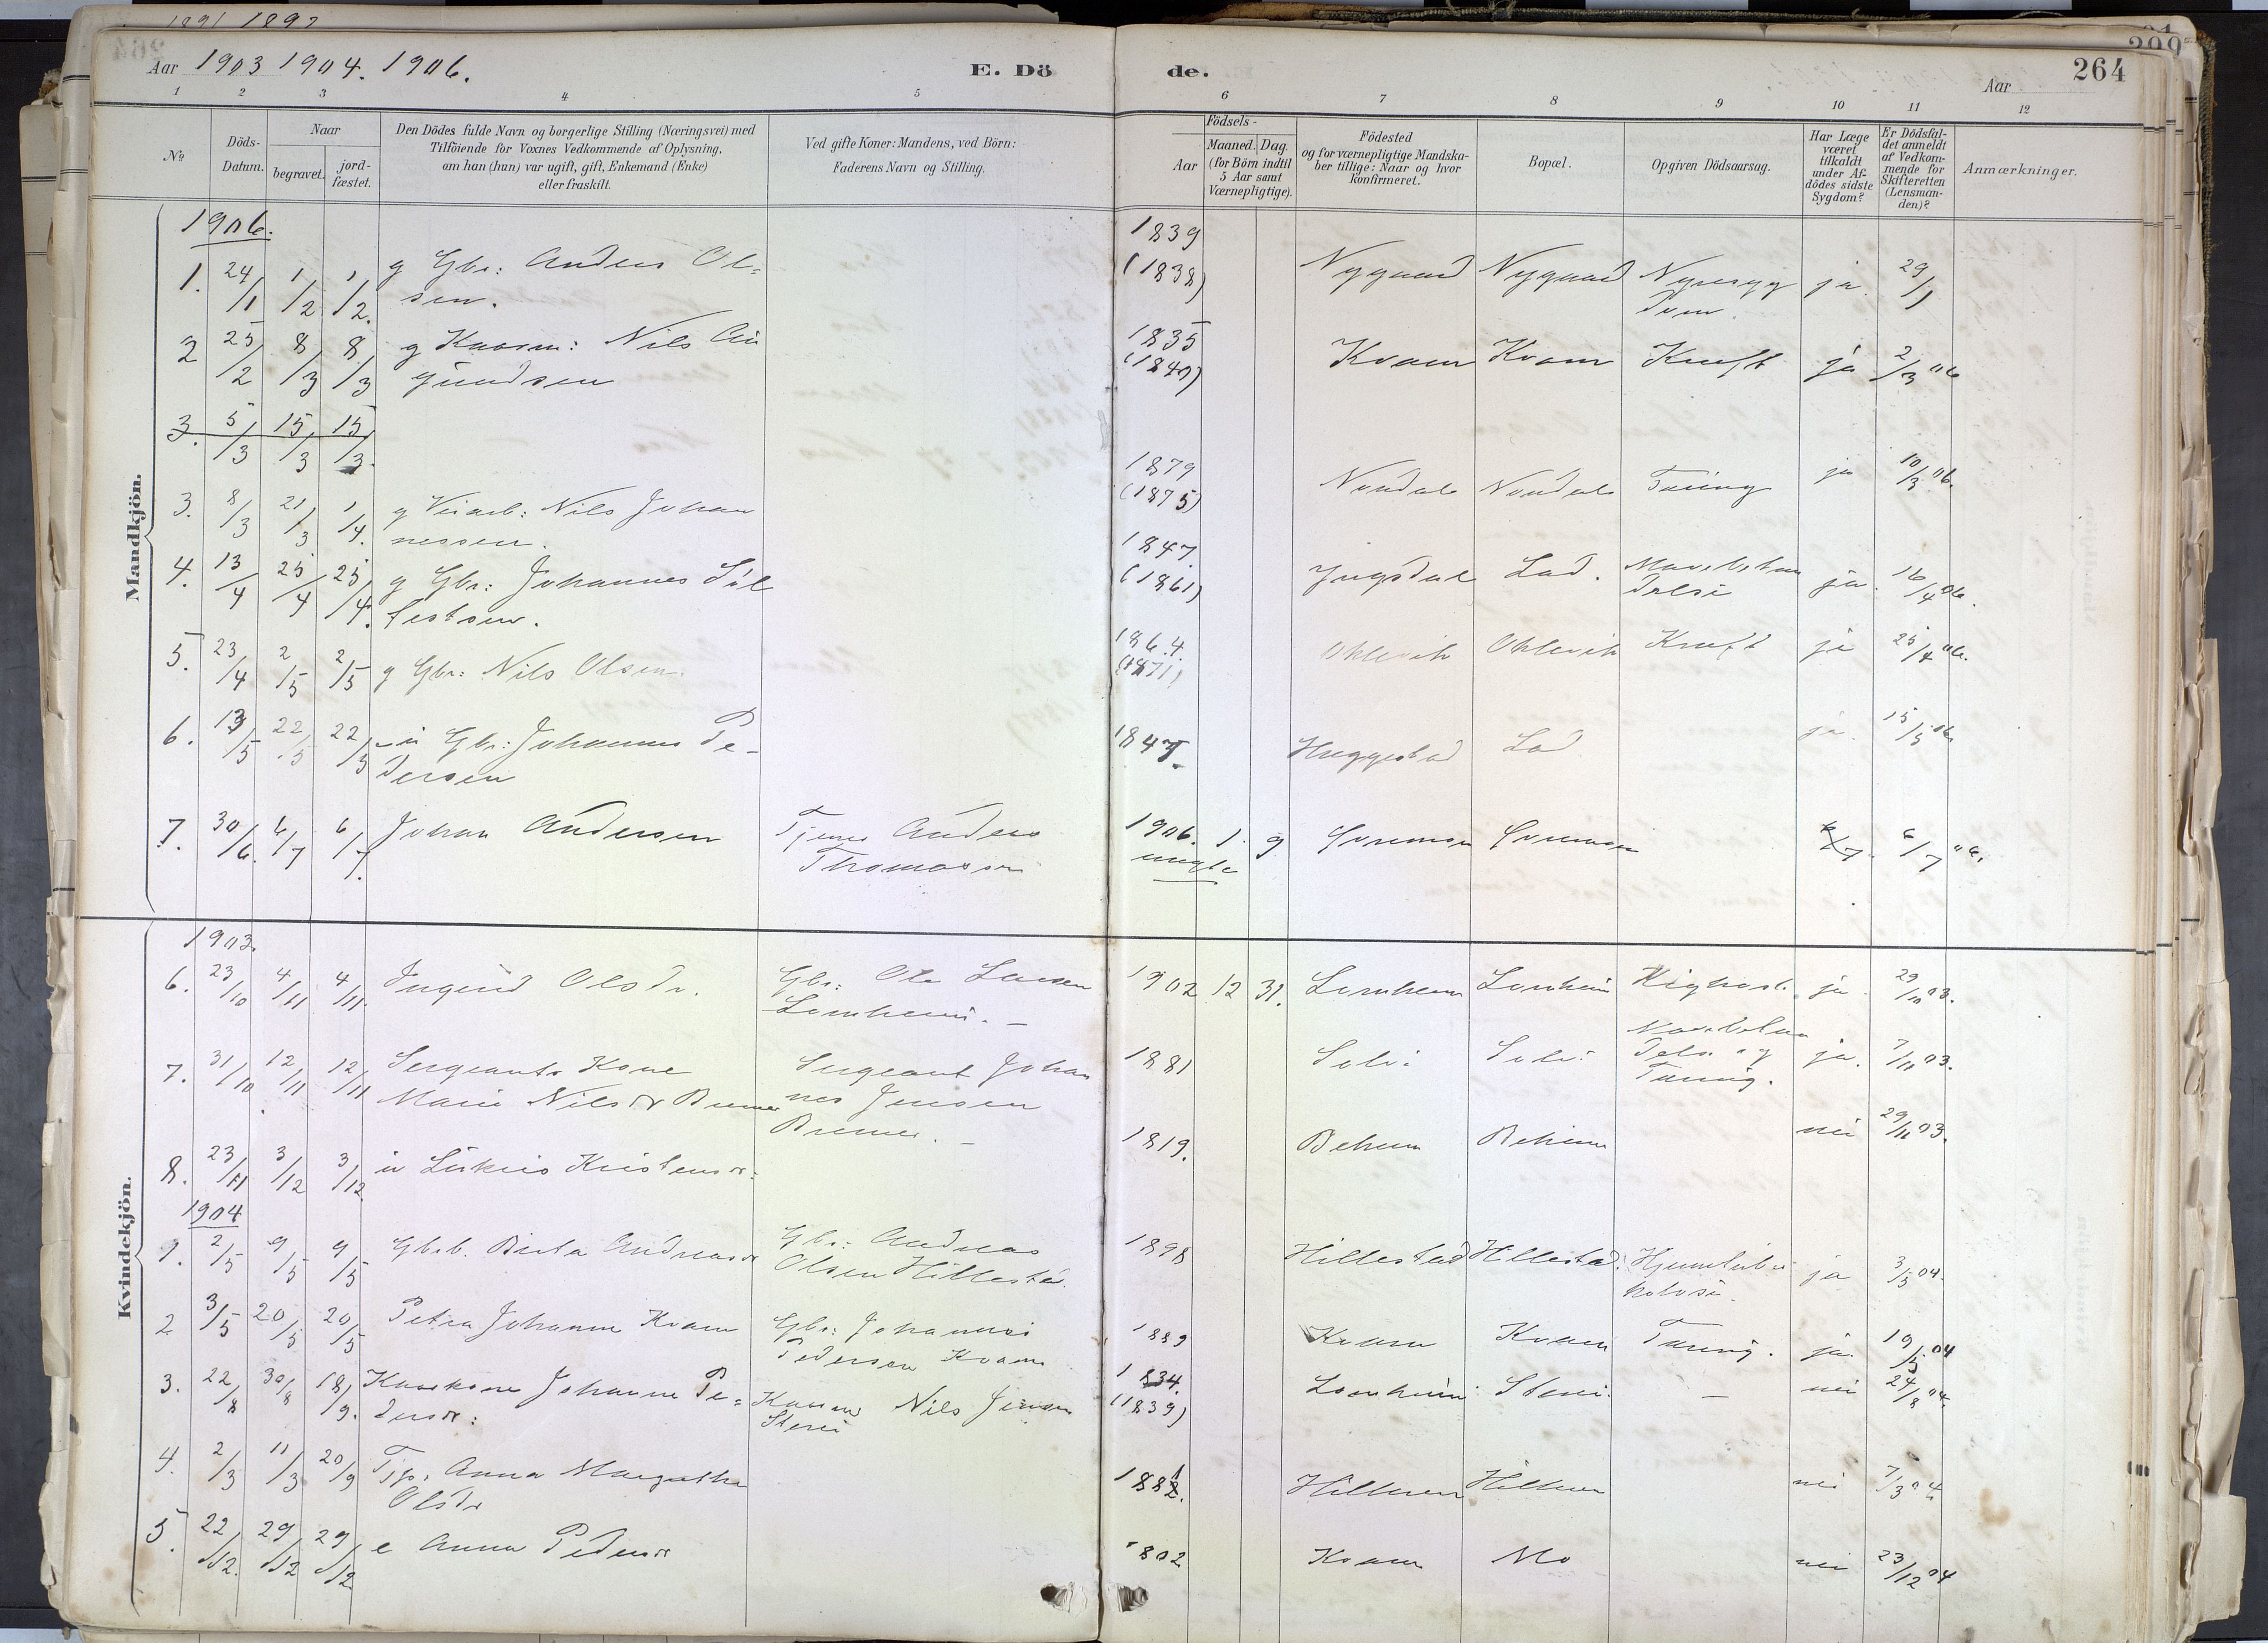 1891 1892
Aar 1903 1904. 1906.
E. Dö de.
Aar
264
1 2 3 4 5 6 7 8 9 10 11 12
No
Döds-Datum.
Naar
begravet.
jord-fæstet.
Den Dödes fulde Navn og borgerlige Stilling (Næringsvei) med
Tilföiende for Voxnes Vedkommende af Oplysning,
om han (hun) var ugift, gift, Enkemand (Enke)
eller fraskilt.
Ved gifte Koner: Mandens, ved Börn:
Faderens Navn og Stilling.
Födsels-
Aar
Maaned. Dag.
(for Börn indtil
5 Aar samt
Værnepligtige).
Födested
og for værnepligtige Mandska-
ber tillige: Naar og hvor
konfirmeret.
Bopæl.
Opgiven Dödsaarsag.
Har Læge
været
tilkaldt
under Af-
dödes sidste
Sygdom?
Er Dödsfal-
det anmeldt
af Vedkom-
mende for
Skifteretten
(Lensman-
den)?
Anmærkninger.
Mandkjön.
1906.
1. 24/1 1/2 1/2. g Gbr: Anders Ol-
sen.
1839
(1838) Nygaard Nygaard Nyresyg
dom. ja. 29/1
2 25/2 8/3 8/3 g Kaarm: Nils
1835
(1840) Kvam Kvam Kræft ja 2/3 06
3. 5/3 15/3 15/3.
3. 8/3 21/3 1/4. g Veiarb: Nils Johan
nessen.
1879
(1875) Nondal Nondal Tæring ja 10/3 06.
4. 13/4 25/4 25/4. g Gbr: Johannes Søl
festsen.
1847.
(1861) Lad. ja. 16/4 06.
5. 23/4 2/5 2/5 g Gbr: Nils Olsen.
1864.
(1871) Oklevik Oklevik Kræft ja 25/4 06.
6. 13/5 22/5 22/5 u Gbr: Johannes Pe-
dersen
1847. Heggestad Lad ja. 15/5 06.
7. 30/6. 6/7 6/7. Johan Andersen
Tjener Anders
Thomassen
1906. 1. 9
uægte
6/7 06.
Kvindekjön.
1903.
6. 23/10 4/11 4/11. Ingrid Olsdr.
Gbr: Ole Larsen
Lomheim.
1902 12 31. Lomheim Lomheim Kighost. ja. 29/10 03.
7. 31/10 12/11 12/11 Sergeants Kone
Marie Nilsdr Bremer
Sergeant Johan
nes Jensen
Bremer.
1881 Solvi Solvi og
Tæring. ja. 7/11 03.
8. 23/11 3/12 3/12 u Lukris Kristensdr:
1819. nei 29/11 03.
1904
1. 2/5 9/5 9/5 Gbrb. Berta Andreasdr
Gbr: Andreas
Olsen Hillestad.
1898 Hillestad Hillestad. Hjerntuber
kolose. ja 3/5 04.
2 3/5 20/5 20/5 Petra Johanne Kvam
Gbr: Johannes
Pedersen Kvam
1889 Kvam Kvam Tæring. ja. 19/5 04
3. 22/8 30/8 18/9. Kaarkone Johanne Pe-
dersdr:
Kaarm Nils Jensen
1834.
(1839) Lomheim - nei 24/8 04.
4. 2/3 11/3 20/9 Tjp. Anna Margretha
Olsdr
nei 7/3 04
5. 22/12. 29/12 29/12 e Anna Pedersdr
1802 Kvam Mo nei 23/12 04